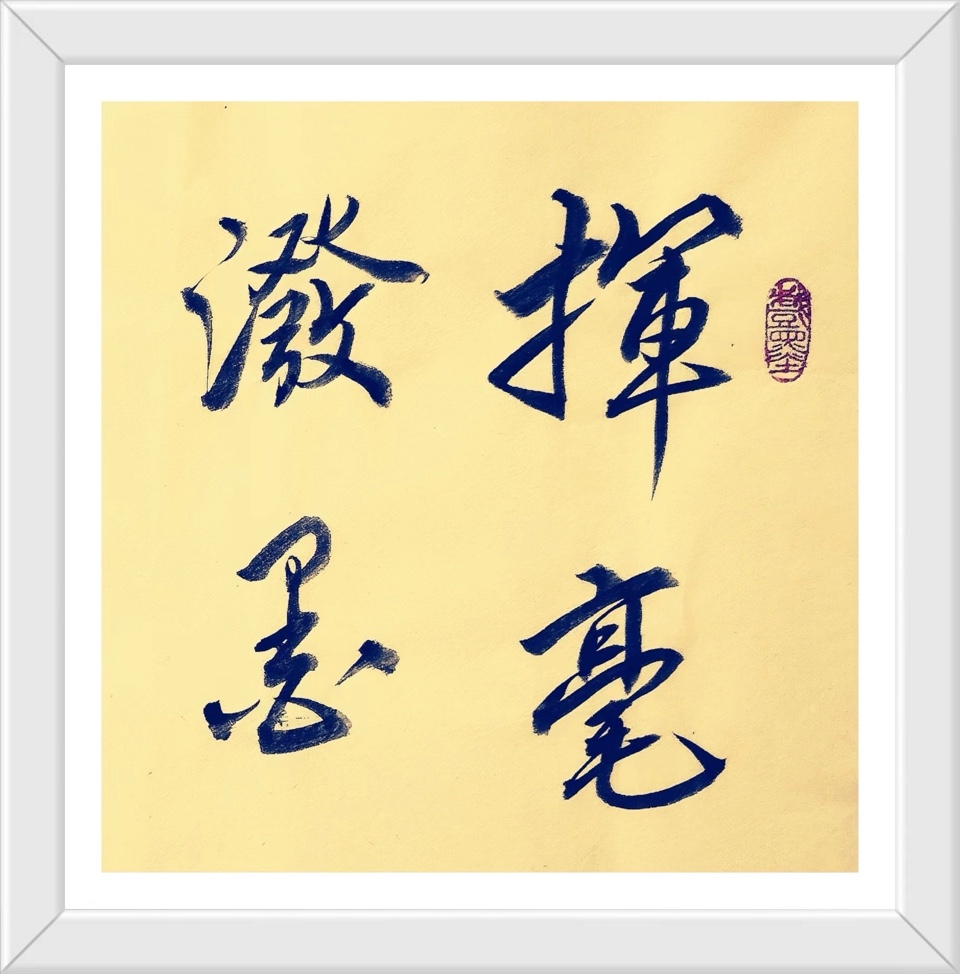 揮毫
潑墨